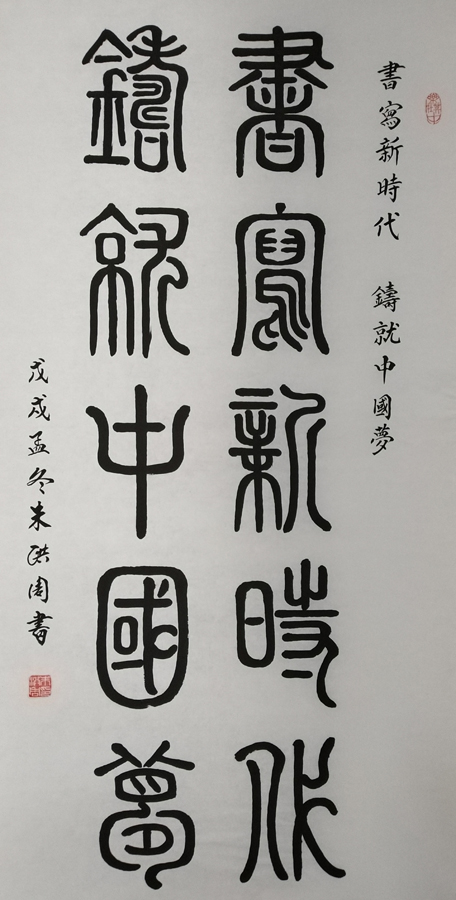 書寫新時代 鑄就中國夢
書寫新時代
鑄就中國夢
戊戌孟冬朱洪周書